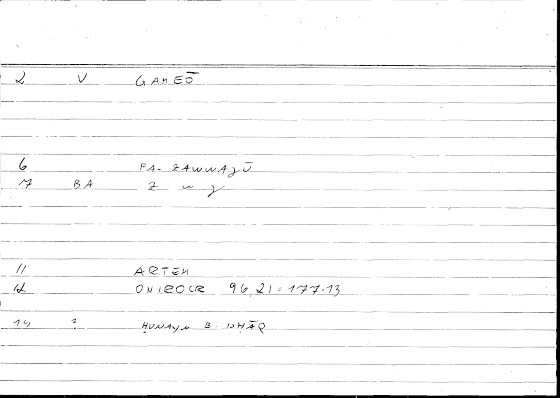 2 V GAMEŌ
6 FA-ZAWWAǧŪ
7 BA Z w ǧ
11 ARTEM
12 ONIROCR 96,21=177.13
14 ? ḤUNAYN B. ISḤĀQ